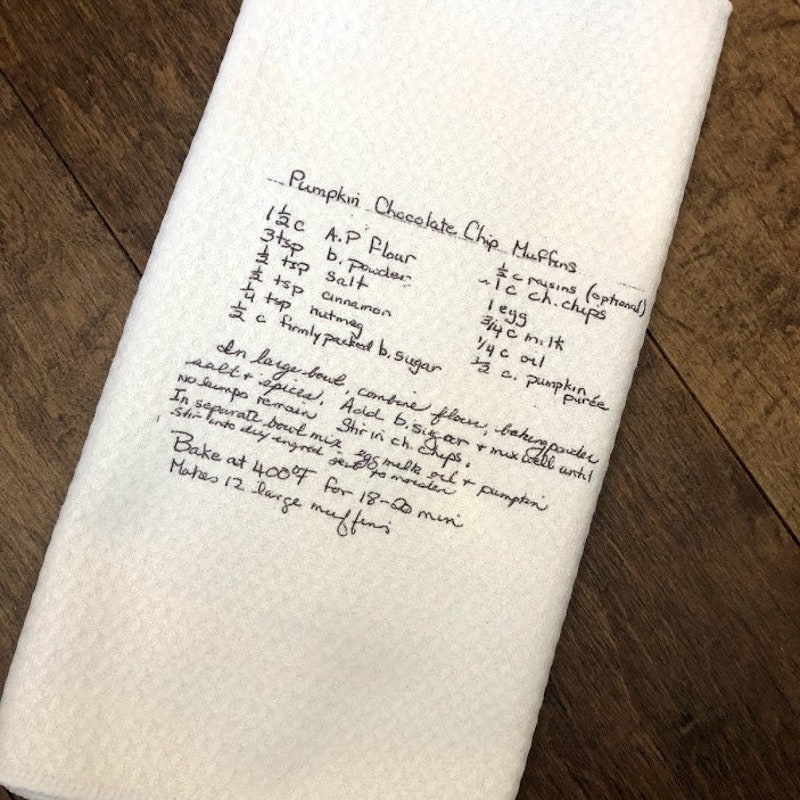 Pumpkin Chocolate Chip Muffins
1 1/2 c A.P flour
3 tsp b. powder
1/2 tsp salt
1/2 tsp cinnamon
1/4 tsp nutmeg
1/2 c firmly packed b. sugar
1/2 c raisins (optional)
~1 c ch. chips
1 egg
3/4 c milk
1/4 c oil
1/2 c. pumpkin
purée
In large bowl, combine flour, baking powder
salt + spices. Add b. sugar + mix well until
no lumps remain Stir in ch. chips.
In separate bowl mix egg milk oil + pumpkin
Stir into dry ingred just to moisten
Bake at 400°F for 18-20 min
Makes 12 large muffins